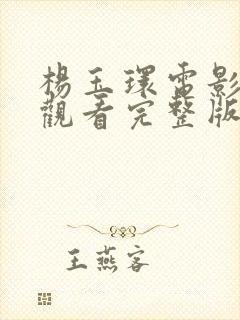 楊玉環電影
觀看完整版
王燕客